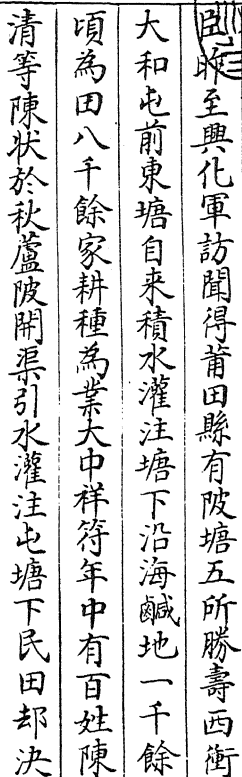 臣昨至興化軍訪聞得莆田縣有陂塘五所勝壽西衝
大和屯前東塘自来積水灌注塘下沿海鹹地一千餘
頃為田八千餘家耕種為業大中祥符年中有百姓陳
清等陳状於秋蘆陂開渠引水灌注屯塘下民田却決